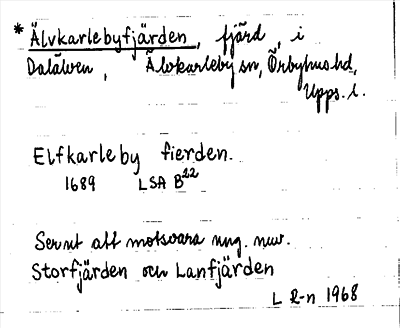 * Älvkarlebyfjärden, fjärd, i
Dalälven, Älvkarleby sn, Örbyhus hd,
Upps. l.
Elfkarleby fierden.
1689 LSA B22
Senut att motsvara ung. nuv.
Storfjärden och Lanfjärden
L R-n 1968